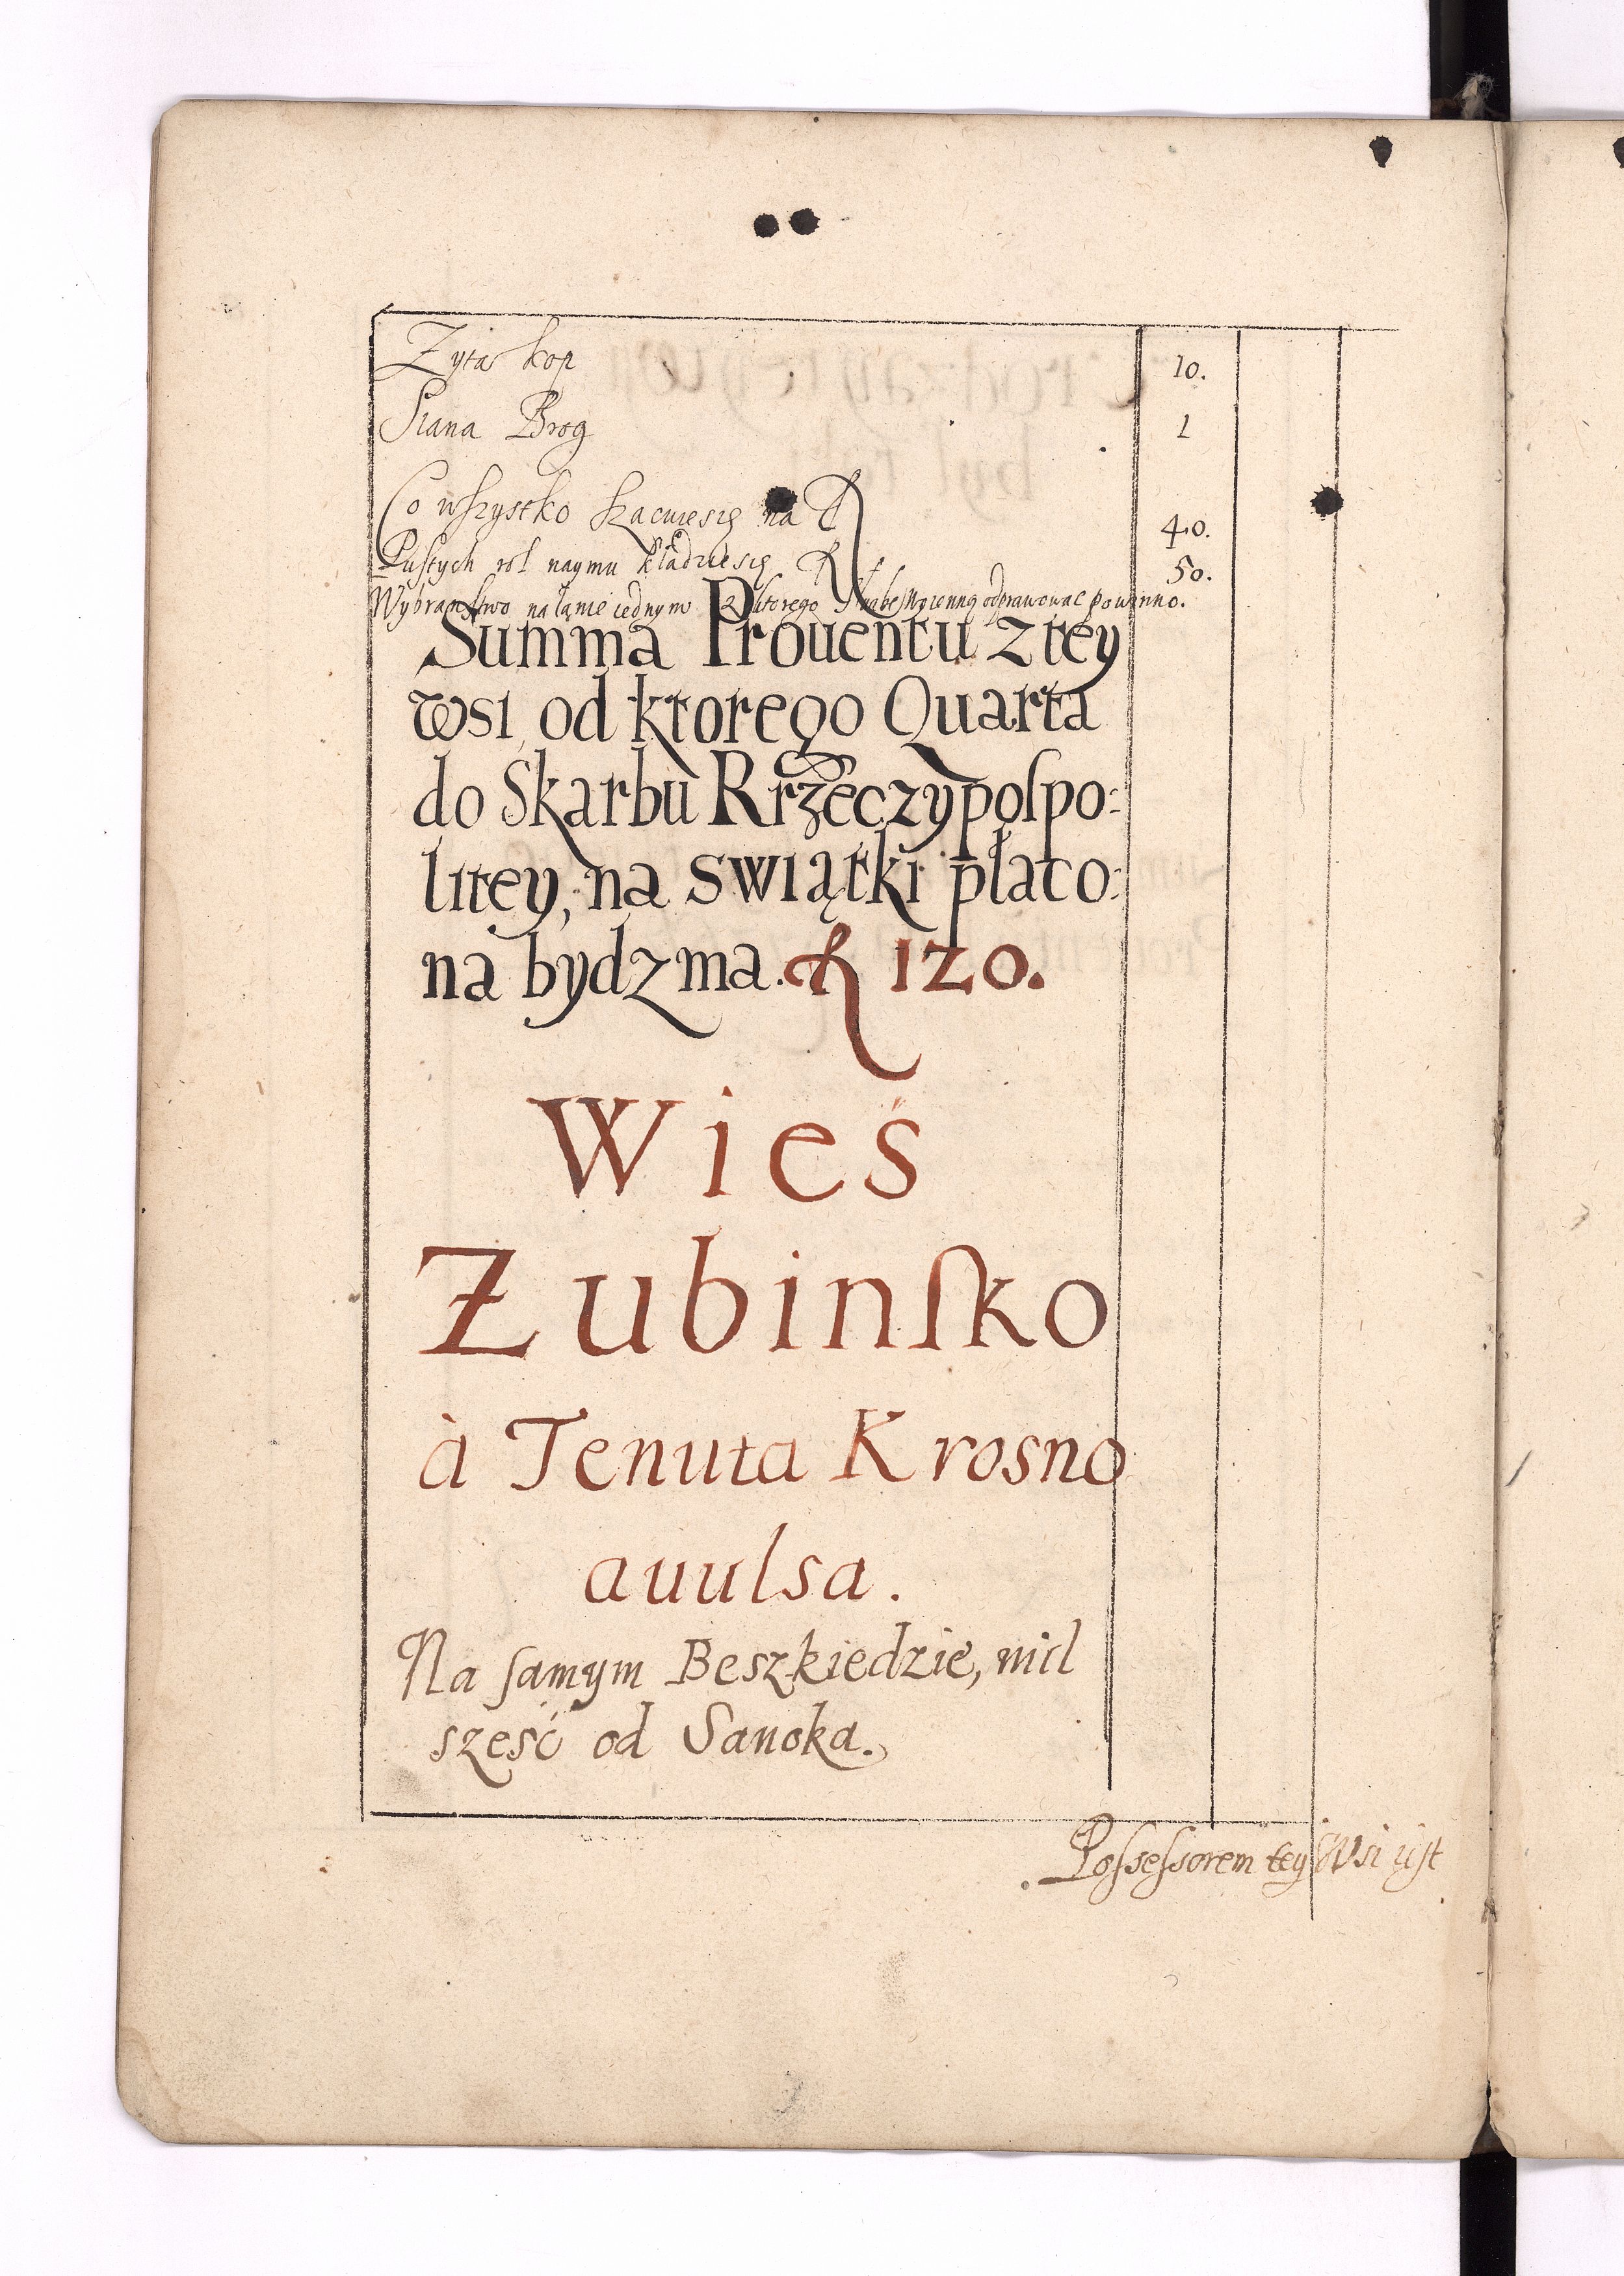 Zyta kop 10.
Siana Brog 1
Co wszystko szacuie się na fl 40.
Pustych rol naymu kładzie się fl 50.
Wybraństwo na łanie iednym z ktorego służbę woienną odprawować powinno.
Summa Prouentu z tey
wsi, od ktorego Quarta
do Skarbu Rrzeczypospo:
litey, na swiątki płaco:
na bydz ma. fl 120.
Wieś
Żubinsko
à Tenuta Krosno
auulsa.
Na samym Beszkiedzie, mil
sześć od Sanoka.
Possessorem tey Wsi iest